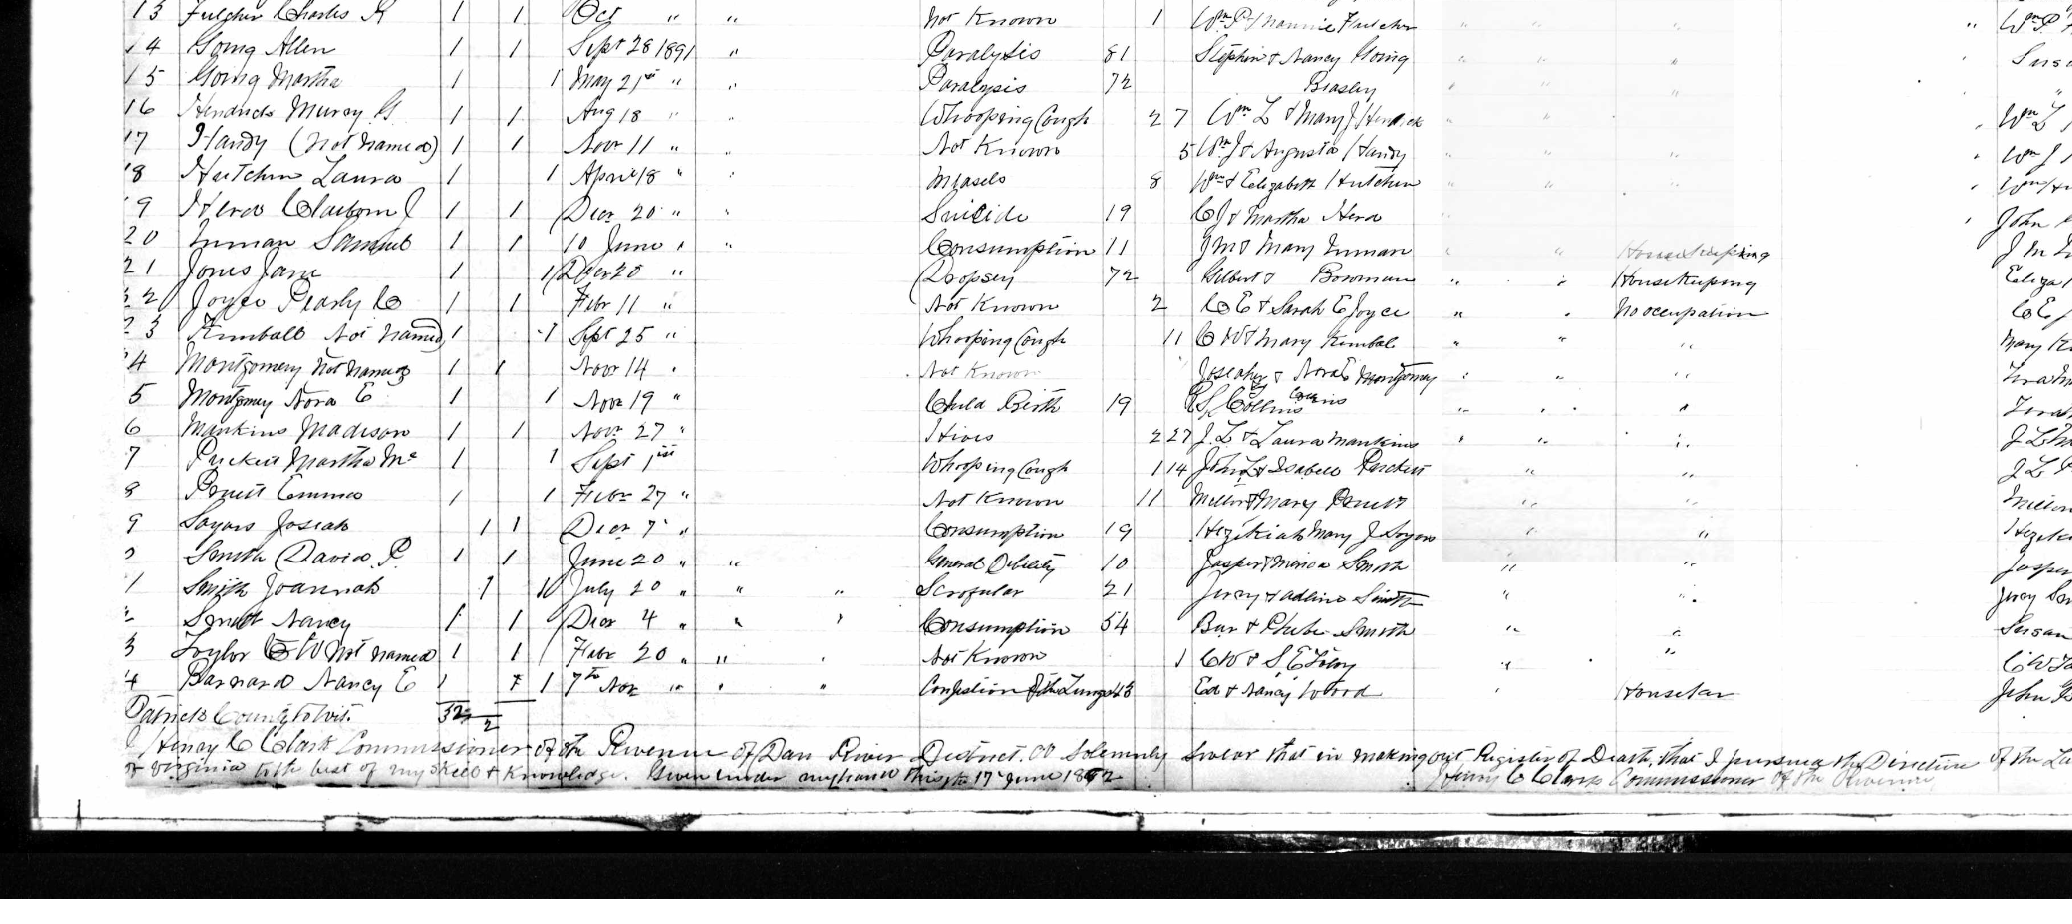 13 Fulcher Charles R 1 1 Oct " " Not Known 1 Wm P & Nannie Fulcher " " " Wm P
14 Going Allen 1 1 Sept 28 1891 " Paralysis 81 Stephen & Nancy Going " " Susa
15 Going Martha 1 1 May 21st " " Paralysis 72 Beasley " "
16 Hendricks Murry G 1 1 Aug 18 " " Whooping Cough 2 7 Wm L & Mary J Hendrick " " Wm L
17 Handy (Not Named) 1 1 Novr 11 " " Not Known 5 Wm J & Augusta Handy " " " Wm J
18 Hutchin Laura 1 1 April 18 " " Measels 8 Wm & Elizabeth Hutchin " " " Wm
19 Herd Claiborn J 1 1 Decr 20 " " Suicide 19 C J & Martha Herd " John
20 Inman Samuel 1 1 10 June " " Consumption 11 J M & Mary Inman " " House Keeping J M
21 Jones Jane 1 1 Decr 20 " Dropsey 72 Gilbert & Bowman " " House Keeping Eliza
22 Joyce Pearly C 1 1 Febr 11 " Not Known 2 C E & Sarah E Joyce " " No occupation C E
23 Kimball Not Named) 1 1 Sept 25 " Whooping Cough 11 C W & Mary Kimball " " " Mary K
4 Montgomery Not Named 1 1 Novr 14 " Not Known & Nora E Montgomery " " "
5 Montgomey Nora E 1 1 Novr 19 " Child Birth 19 Collins " " "
6 Mankins Madison 1 1 Novr 27 " Hives 2 27 J. L & Laura Mankins " " " J L
7 Puckett Martha Mc 1 1 Sept 1st Whooping Cough 1 14 John L & Isabell Puckett " " J L
8 Pruett Emma 1 1 Febr 27 " Not Known 11 Milton & Mary Pruett " " Milton
9 Sayers Josiah 1 1 Decr 7 " Consumption 19 Hezikiah Mary J Sayers " " Hezeki
0 Smith David P. 1 1 June 20 " " General Debility 10 Jasper & Smith " " Jasper
1 Smith Joannah 1 1 July 20 " " " Scrofular 21 Jerry & Adline Smith " " Jerry
2 Smith Nancy 1 1 Decr 4 " " " Consumption 54 Bur & Phebe Smith " " Susan
3 Taylor C W Not Named 1 1 Febr 20 " " " Not Known 1 C W & S E " " C W
4 Barnard Nancy E 1 1 7th Nov " " " Congestion of the Lungs 43 Ed & Nancy Wood " John
Patrick County to wit. 32 2
I Henry C Clark Commissioner of the Revenue of Dan River District. do Solemnly Swear that in making out Register of Death, that I pursued the Direction of the La
of Virginia to the best of my skill & Knowledge. Given under my hand this the 17th June 1892
Henry C Clark Commissioner of the Revenue